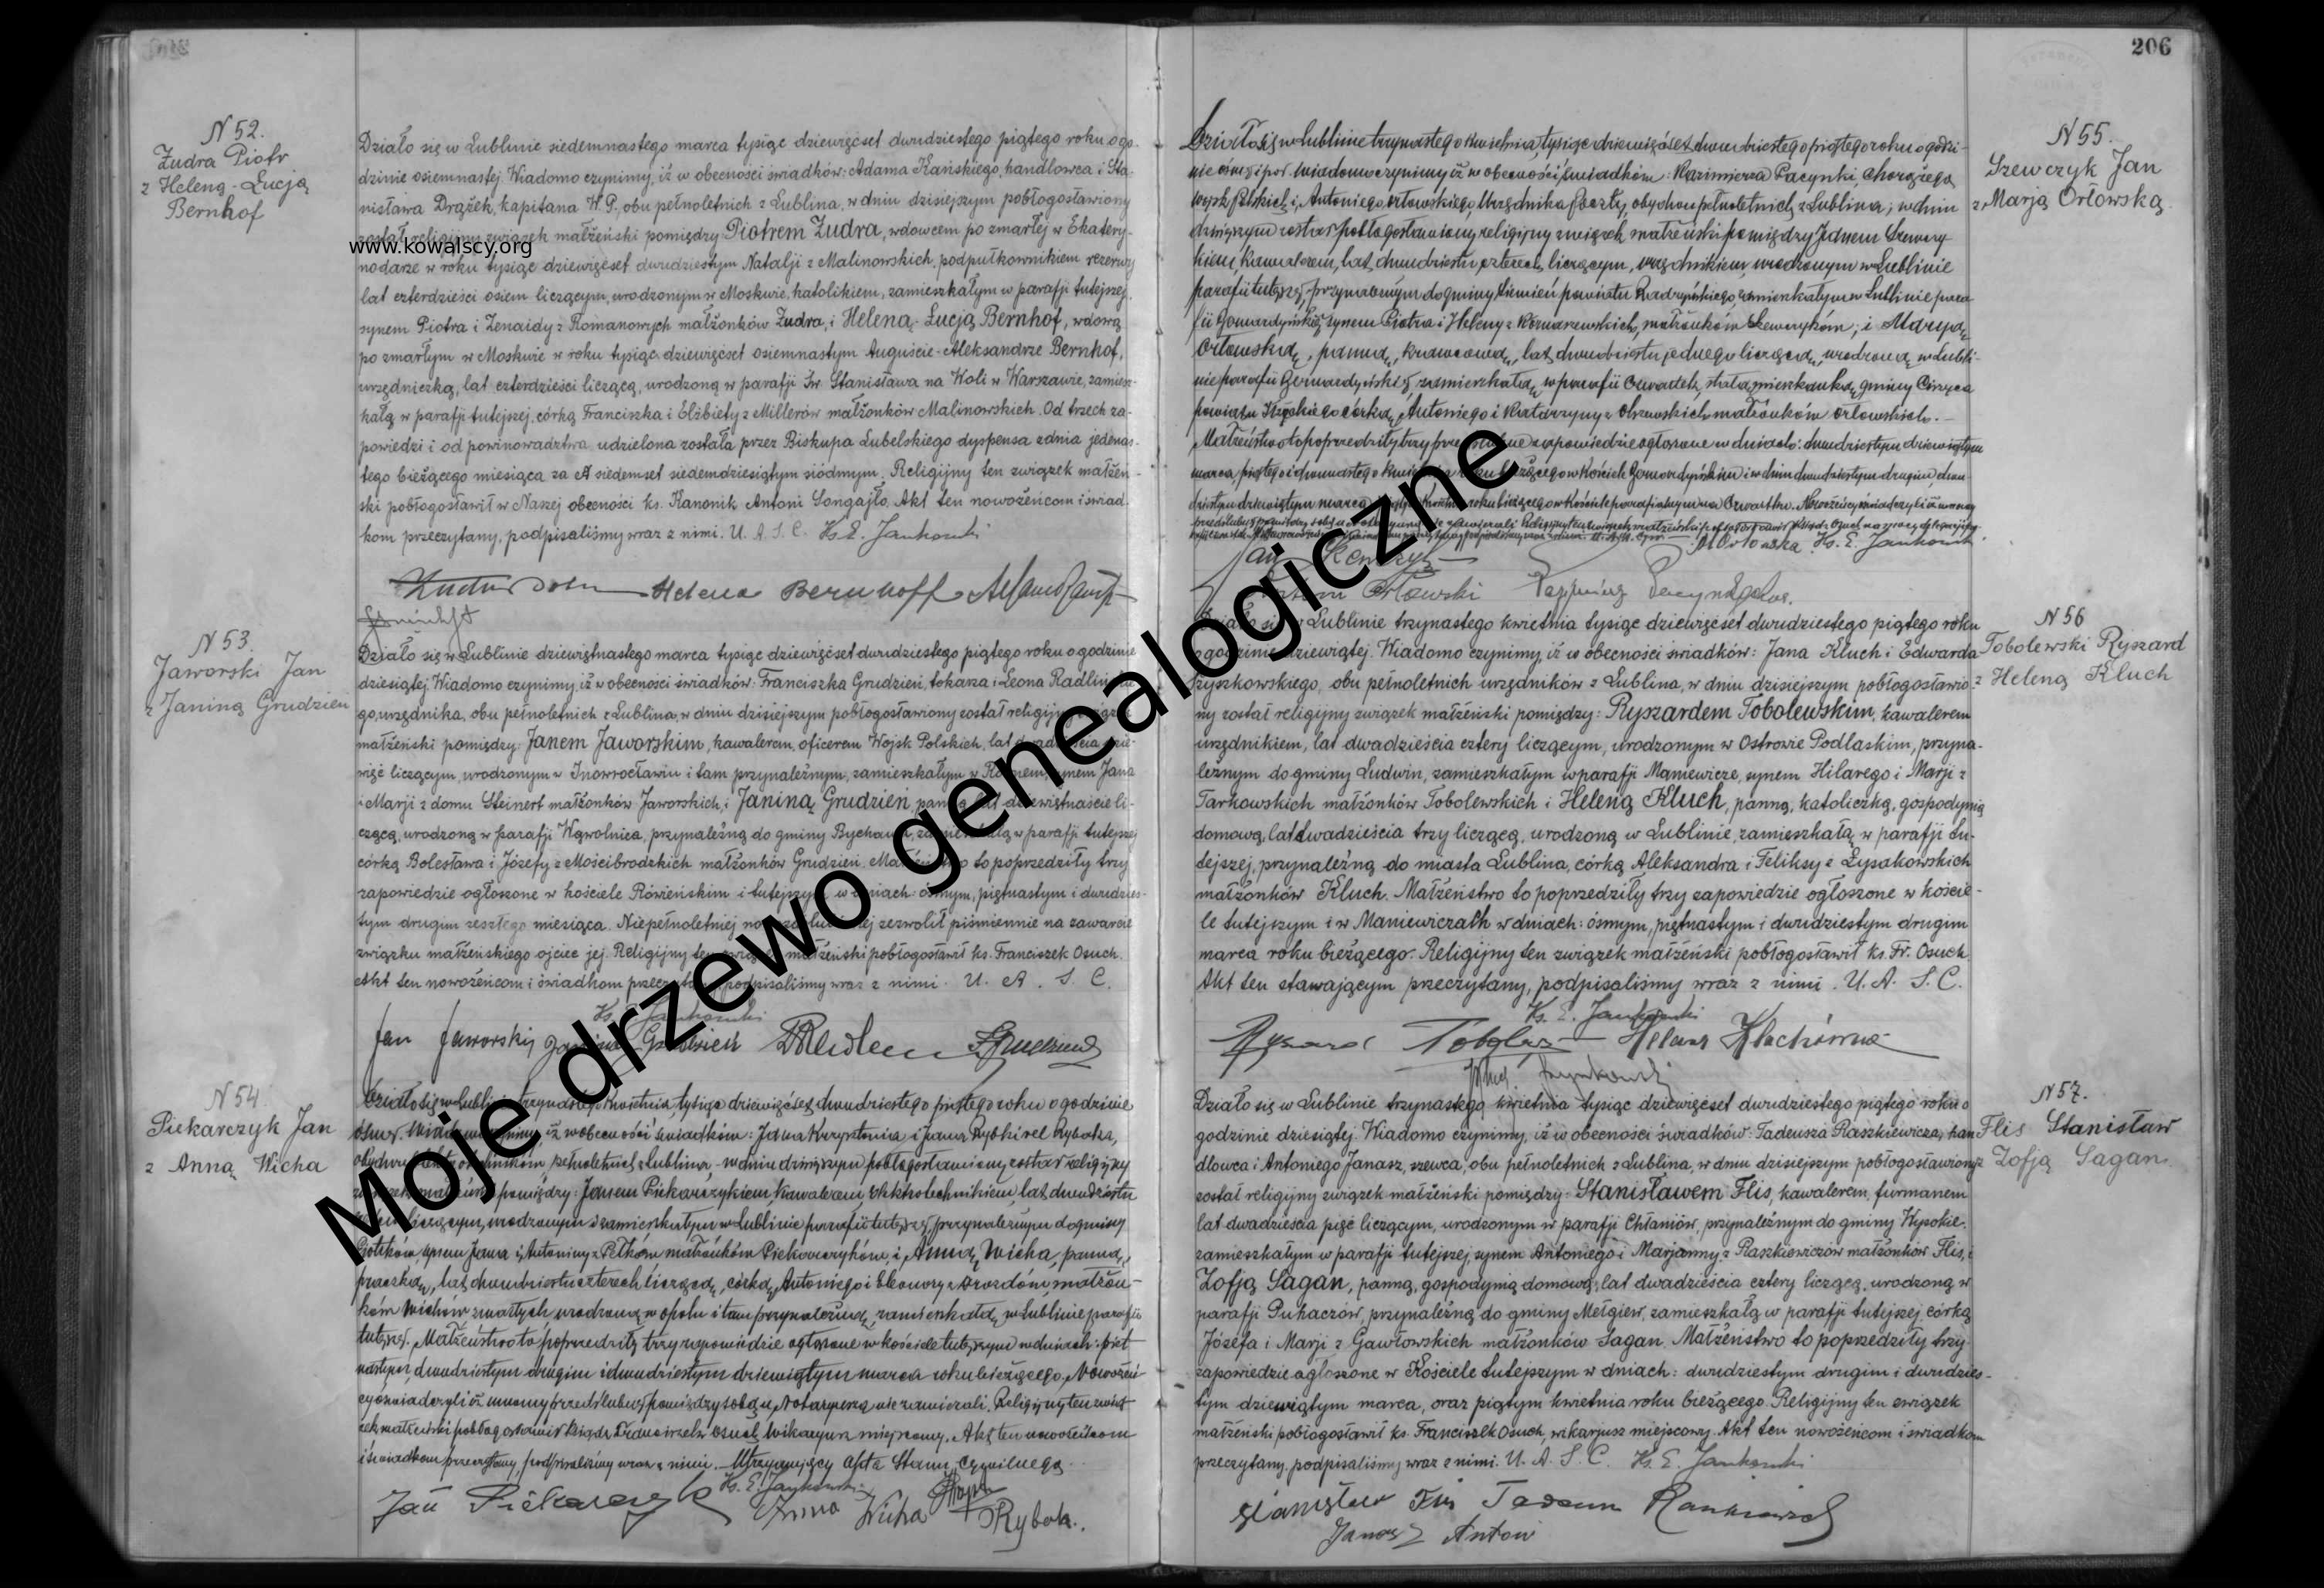 206
www.kowalscy.org
Moje drzewo genealogiczne
N 52.
Żudra Piotr
z Heleną-Łucją
Bernhof
Działo się w Lublinie siedemnastego marca tysiąc dziewięćset dwudziestego piątego roku o go-
dzinie osiemnastej. Wiadomo czynimy, iż w obecności świadków: Adama Kańskiego, handlowca i Sta-
nisława Drążek, kapitana W.P., obu pełnoletnich z Lublina, w dniu dzisiejszym pobłogosławiony
został religijny związek małżeński pomiędzy Piotrem Żudra, wdowcem po zmarłej w Ekatery-
nodarze w roku tysiąc dziewięćset dwudziestym Natalji z Malinowskich, podpułkownikiem rezerwy
lat czterdzieści osiem liczącym, urodzonym w Moskwie, katolikiem, zamieszkałym w parafji tutejszej,
synem Piotra i Zenaidy z Romanowych małżonków Żudra, i Heleną-Łucją Bernhof, wdową
po zmarłym w Moskwie w roku tysiąc dziewięćset osiemnastym Auguście-Aleksandrze Bernhof,
urzędniczką, lat czterdzieści liczącą, urodzoną w parafji Św. Stanisława na Woli w Warszawie, zamiesz-
kałą w parafji tutejszej, córką Franciszka i Elżbiety z Millerów małżonków Malinowskich. Od trzech za-
powiedzi i od powinowactwa udzielona została przez Biskupa Lubelskiego dyspensa z dnia jedenas-
tego bieżącego miesiąca za N siedemset siedemdziesiątym siódmym. Religijny ten związek małżeń-
ski pobłogosławił w Naszej obecności ks. Kanonik Antoni Songajłło. Akt ten nowożeńcom i świad-
kom przeczytany, podpisaliśmy wraz z nimi. U. A. S. C. Ks. E. Jankowski
Helena Bernhoff
N 53.
Jaworski Jan
z Janiną Grudzień
Działo się w Lublinie dziewiętnastego marca tysiąc dziewięćset dwudziestego piątego roku o godzinie
dziesiątej. Wiadomo czynimy, iż w obecności świadków: Franciszka Grudzień, tokarza i Leona Radlińskie-
go, urzędnika, obu pełnoletnich z Lublina, w dniu dzisiejszym pobłogosławiony został religijny związek
małżeński pomiędzy: Janem Jaworskim, kawalerem, oficerem Wojsk Polskich, lat dwadzieścia dzie-
więć liczącym, urodzonym w Inowrocławiu i tam przynależnym, zamieszkałym w Równem, synem Jana
i Marji z domu Steinert małżonków Jaworskich, i Janiną Grudzień, panną, lat dziewiętnaście li-
czącą, urodzoną w parafji Wąwolnica, przynależną do gminy Bychawa, zamieszkałą w parafji tutejszej
córką Bolesława i Józefy z Mościbrodzkich małżonków Grudzień. Małżeństwo to poprzedziły trzy
zapowiedzie ogłoszone w kościele Rówieńskim i tutejszym w dniach: ósmym, piętnastym i dwudzies-
tym drugim zeszłego miesiąca. Niepełnoletniej nowozaślubionej zezwolił piśmiennie na zawarcie
związku małżeńskiego ojciec jej. Religijny ten związek małżeński pobłogosławił ks. Franciszek Osuch.
Akt ten nowożeńcom i świadkom przeczytany, podpisaliśmy wraz z nimi. U. A. S. C.
Ks. E. Jankowski
Jan Jaworski, Janina Grudzień
N 54.
Piekarczyk Jan
z Anną Wicha
Działo się w Lublinie trzynastego kwietnia tysiąc dziewięćset dwudziestego piątego roku o godzinie
ósmej. Wiadomo czynimy, iż w obecności świadków: Jana Krzysztonia i Jana Rybki vel Rybaka,
obydwu pełnoletnich z Lublina, w dniu dzisiejszym pobłogosławiony został religijny
związek małżeński pomiędzy: Janem Piekarczykiem, kawalerem, elektrotechnikiem, lat dwadzieścia
liczącym, urodzonym i zamieszkałym w Lublinie parafii tutejszej, przynależnym do gminy
Piotrków, synem Jana i Antoniny z Pełków małżonków Piekarczyków, i Anną Wicha, panną,
praczką, lat dwadzieścia czterech liczącą, córką Antoniego i Eleonory z Drozdów, małżon-
ków Wichów zmarłych, urodzoną w Opolu i tam przynależną, zamieszkałą w Lublinie parafii
tutejszej. Małżeństwo to poprzedziły trzy zapowiedzie ogłoszone w kościele tutejszym w dniach: pięt-
nastym, dwudziestym drugim i dwudziestym dziewiątym marca roku bieżącego. Nowożeń-
cy oświadczyli iż umowy przedślubnej pomiędzy sobą u Notaryusza nie zawierali. Religijny ten zwią-
zek małżeński pobłogosławił Ksiądz Franciszek Osuch, Wikaryusz miejscowy. Akt ten nowożeńcom
i świadkom przeczytany, podpisaliśmy wraz z nimi. — Utrzymujący Akta Stanu Cywilnego
Ks. E. Jankowski
Jan Piekarczyk Anna Wicha
Rybak.
N 55.
Szewczyk Jan
z Marją Orłowską
Działo się w Lublinie trzynastego kwietnia, tysiąc dziewięćset dwudziestego piątego roku o godzi-
nie ósmej i pół. Wiadomo czynimy iż w obecności świadków: Kazimierza Pacynki, chorążego
wojsk Polskich i Antoniego Orłowskiego Urzędnika Poczty, obydwu pełnoletnich z Lublina; w dniu
dzisiejszym został pobłogosławiony religijny związek małżeński pomiędzy Janem Szewczy-
kiem, kawalerem, lat dwadzieścia czterech liczącym, urzędnikiem, urodzonym w Lublinie
parafii tutejszej, przynależnym do gminy Siemień powiatu Radzyńskiego, zamieszkałym w Lublinie para-
fii Bernardyńskiej, synem Piotra i Heleny z Komarzewskich, małżonków Szewczyków; i Maryą
Orłowską, panną, krawcową, lat dwadzieścia jednego liczącą, urodzoną w Lubli-
nie parafii Bernardyńskiej, zamieszkałą w parafii Czwartek, stałą mieszkanką gminy
powiatu córką Antoniego i Katarzyny z Olszewskich małżonków Orłowskich. —
Małżeństwo to poprzedziły trzy przedślubne zapowiedzie ogłoszone w dniach: dwudziestym dziewiątym
marca, piątego i dwunastego kwietnia roku bieżącego w kościele Bernardyńskim i w dniu dwudziestym drugim, dwu-
dziestym dziewiątym marca i piątym kwietnia roku bieżącego w kościele parafialnym na Czwartku. Nowożeńcy oświadczyli iż umowy
przedślubnej pomiędzy sobą u Notaryusza nie zawierali. Religijny ten związek małżeński pobłogosławił Ksiądz Osuch
M Orłowska Ks. E. Jankowski
Jan Szewczyk
Antoni Orłowski Kazimierz Pacynka
N 56
Tobolewski Ryszard
z Heleną Kluch
Działo się w Lublinie trzynastego kwietnia tysiąc dziewięćset dwudziestego piątego roku
o godzinie dziewiątej. Wiadomo czynimy, iż w obecności świadków: Jana Kluch i Edwarda
Szyszkowskiego, obu pełnoletnich urzędników z Lublina, w dniu dzisiejszym pobłogosławio-
ny został religijny związek małżeński pomiędzy: Ryszardem Tobolewskim, kawalerem
urzędnikiem, lat dwadzieścia cztery liczącym, urodzonym w Ostrowie Podlaskim, przyna-
leżnym do gminy Ludwin, zamieszkałym w parafji Maniewicze, synem Hilarego i Marji z
Tarkowskich małżonków Tobolewskich i Heleną Kluch, panną, katoliczką, gospodynią
domową, lat dwadzieścia trzy liczącą, urodzoną w Lublinie, zamieszkałą w parafji tu-
tejszej, przynależną do miasta Lublina, córką Aleksandra i Feliksy z Łysakowskich
małżonków Kluch. Małżeństwo to poprzedziły trzy zapowiedzie ogłoszone w koście-
le tutejszym i w Maniewiczach w dniach: ósmym, piętnastym i dwudziestym drugim
marca roku bieżącego. Religijny ten związek małżeński pobłogosławił ks. Fr. Osuch
Akt ten stawającym przeczytany, podpisaliśmy wraz z nimi. U. A. S. C.
Ks. E. Jankowski
Ryszard Tobolewski Helena Kluchówna
N 57.
Flis Stanisław
z Zofją Sagan
Działo się w Lublinie trzynastego kwietnia tysiąc dziewięćset dwudziestego piątego roku o
godzinie dziesiątej. Wiadomo czynimy, iż w obecności świadków: Tadeusza Raszkiewicza, han-
dlowca i Antoniego Janasz, szewca, obu pełnoletnich z Lublina, w dniu dzisiejszym pobłogosławiony
został religijny związek małżeński pomiędzy: Stanisławem Flis, kawalerem, furmanem
lat dwadzieścia pięć liczącym, urodzonym w parafji Chłaniów, przynależnym do gminy Wysokie,
zamieszkałym w parafji tutejszej, synem Antoniego i Marjanny z Raszkiewiczów małżonków Flis, i
Zofją Sagan, panną, gospodynią domową, lat dwadzieścia cztery liczącą, urodzoną w
parafji Puhaczów, przynależną do gminy Mełgiew, zamieszkałą w parafji tutejszej, córką
Józefa i Marji z Gawłowskich małżonków Sagan. Małżeństwo to poprzedziły trzy
zapowiedzie ogłoszone w Kościele tutejszym w dniach: dwudziestym drugim i dwudzies-
tym dziewiątym marca, oraz piątym kwietnia roku bieżącego. Religijny ten związek
małżeński pobłogosławił ks. Franciszek Osuch, wikarjusz miejscowy. Akt ten nowożeńcom i świadkom
przeczytany, podpisaliśmy wraz z nimi. U. A. S. C. Ks. E. Jankowski
Stanisław Flis Tadeusz Raszkiewicz
Janasz Antoni